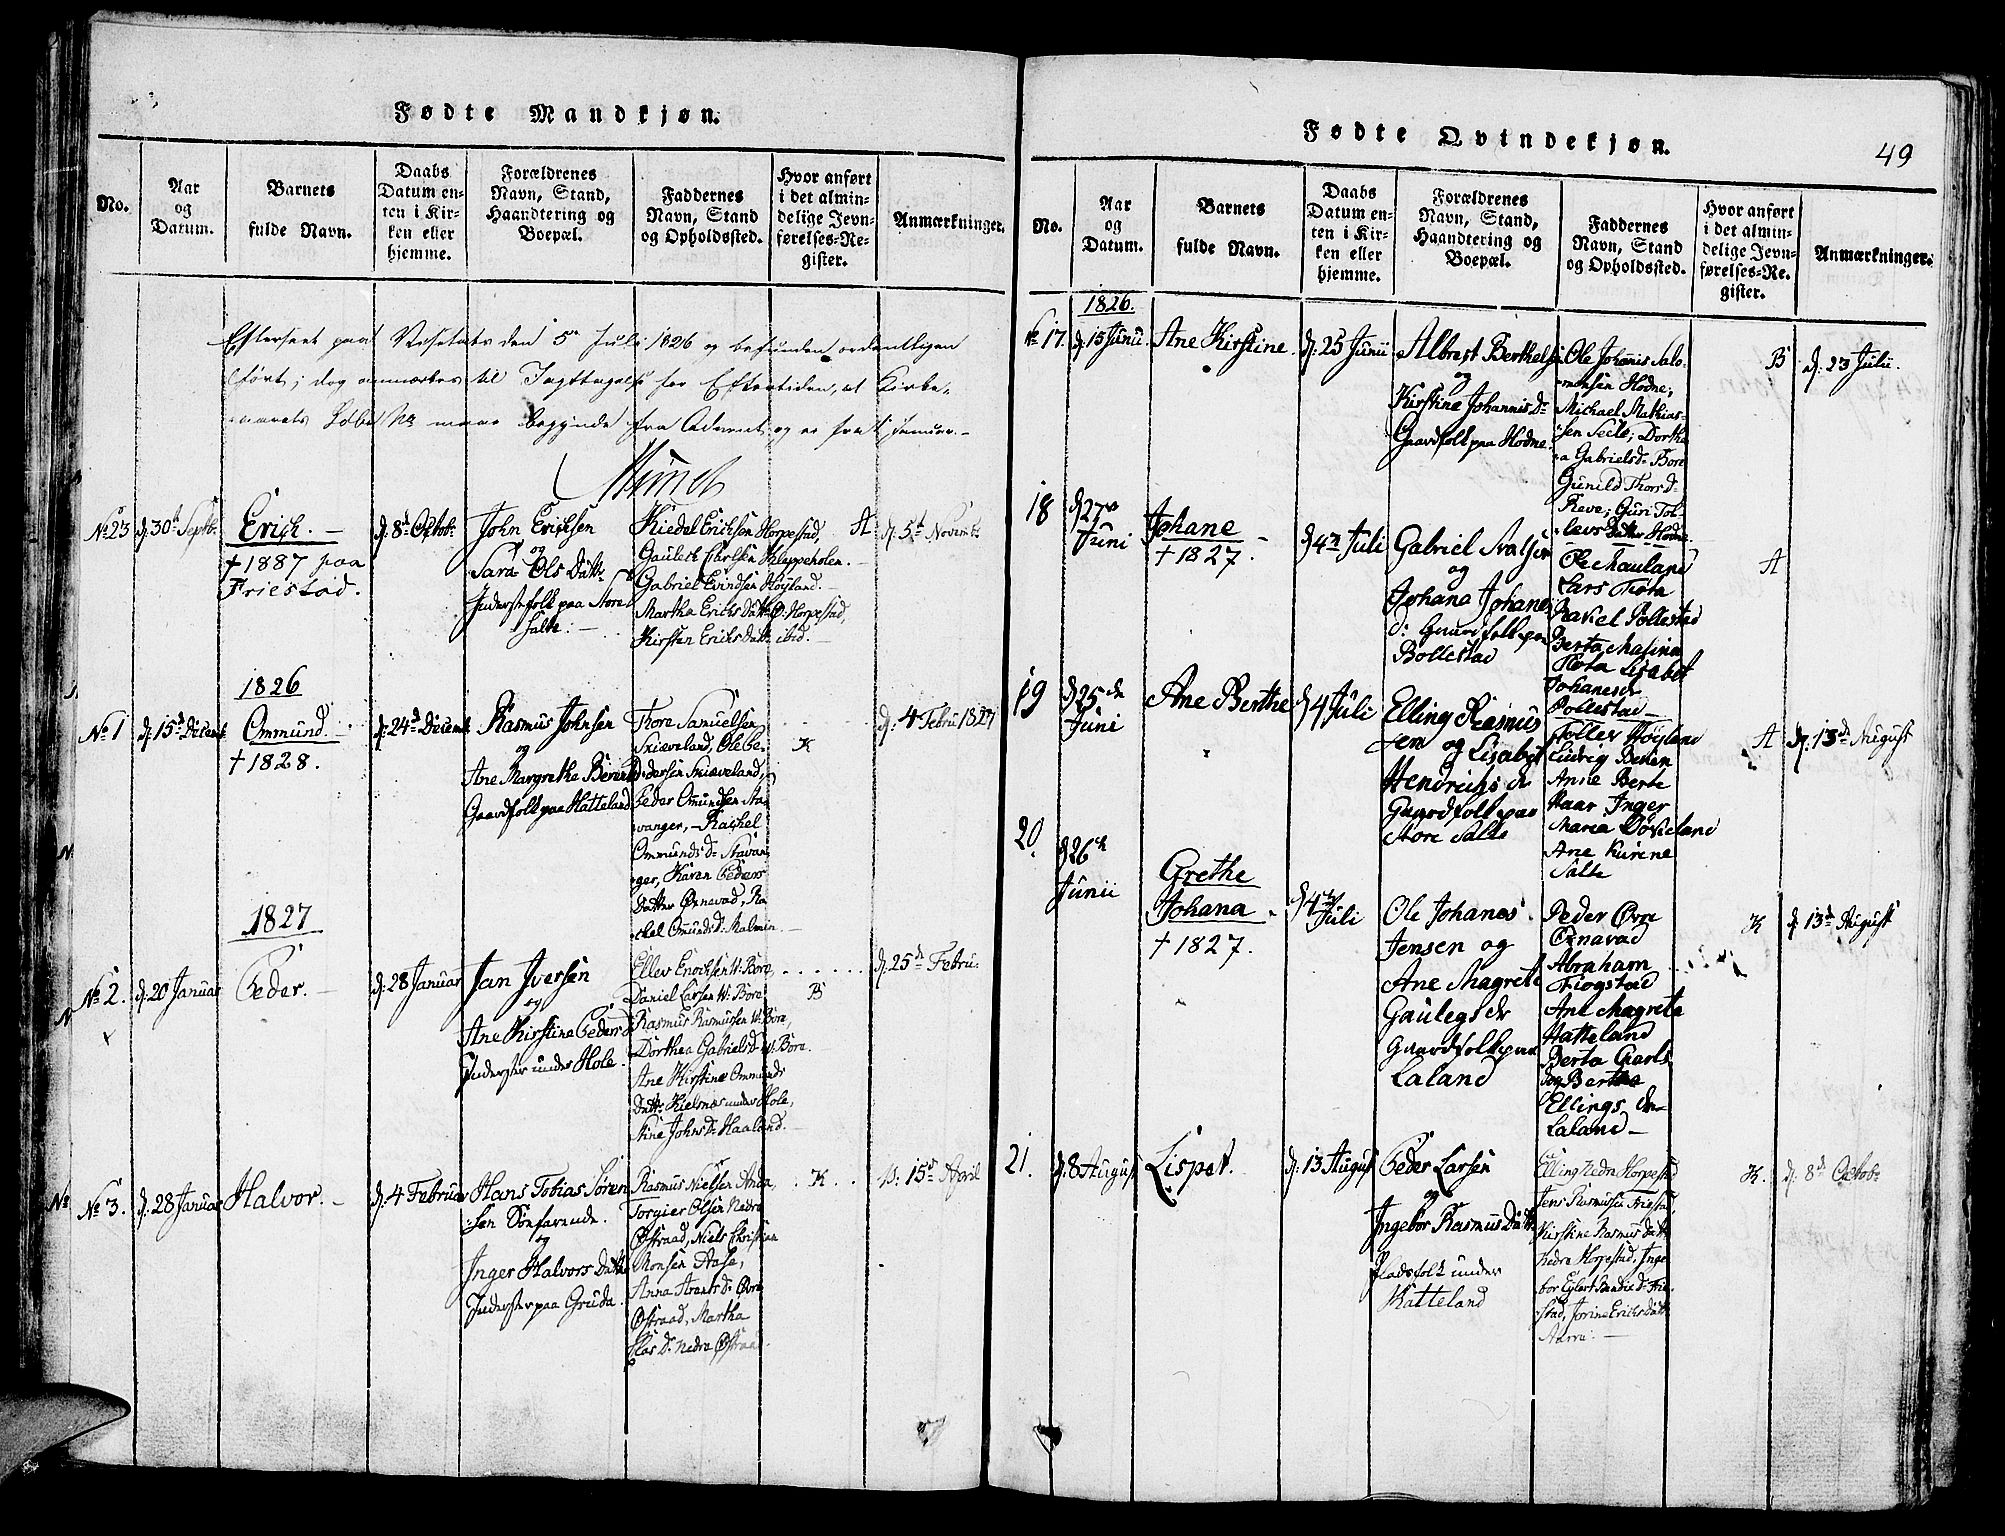 Fødte Mandkjøn.
No.
Aar
og
Datum.
Barnets
fulde Navn.
Daabs
Datum en-
ten i Kir-
ken eller
hjemme.
Forældrenes
Navn, Stand,
Haandtering og
Boepæl.
Faddernes
Navn, Stand
og Opholdssted.
Hvor anført
i det almin-
delige Jevn-
førelses-Re-
gister.
Anmærkninger.
Efterseet paa Visetats den 5 Juli 1826 og befunden ordentligen
ført; dog anmærkes til Iagttagelse for Eftertiden, at Kirke-
aarets Løbe No maae begynde fra Advent og ei fra 1 Januar.-
No 23
d. 30t Septbr.
Erich. -
† 1887 paa
Friestad.
d. 8d Octobr
John Erichsen
og
Sara Ols Dattr
Inderstefolk paa Store
Salte: -
Kiedel Erichsen Horpestad,
Gauleth Carlsen Kleppeholen. -
Gabriel Eivindsen Høyland. -
Martha Erichs Datter Horpestad,
Kirsten Erichs Dattr ibid. -
A
d. 5d Novembr
1826
No 1
d. 15d Decembr
Ommund. -
† 1828.
d. 24d Decembr
Rasmus Johnsen
og
Ane Margretha Berentsd
Gaardfolk paa Hatteland
Thore Samuelsen
Skiæveland, Ole Pe-
dersen Skiæveland,
Peder Omundsen Sta-
vanger, - Rachel
Ommundsdr Stavan-
ger, Karen Peders
Datter Ørnavad, Ra-
chel Omundsd: Malmin. -
K
d. 4 Febru 1827
1827
No 2.
d. 20 Januar
Peder. -
d. 28 Januar
Jan Iversen
og
Ane Kirstine Pedersd
Inderster under Hole.
Ellev Enochsen W: Bore,
Daniel Larsen W: Bore
Rasmus Rasmussen W: Bore,
Dorthea Gabrielsd W: Bore.
Ane Kirstine Ommunds
Dattr Kielsnes under Hole,
Stine Johnsdr Haaland. -
B
d. 25d Febru.
No 3.
d. 28 Januar
Halvor. -
d. 4 Februar
Hans Tobias Søren-
sen Søefarende.
og
Inger Halvors Datter
Inderster paa Gruda.
Rasmus Nielsen Anda,
Torgier Olsen Nedre
Østraad, Niels Christian
Monsen Aase,
Anna Arentsdr Øvre
Østraad, Martha
Clas Dr Nedre Østraad.
K
d. 15d April
Fødte Qvindekjøn.
49
No.
Aar
og
Datum.
Barnets
fulde Navn.
Daabs
Datum en-
ten i Kir-
ken eller
hjemme.
Forældrenes
Navn, Stand,
Haandtering og
Boepæl.
Faddernes
Navn, Stand
og Opholdssted.
Hvor anført
i det almin-
delige Jevn-
førelses-Re-
gister.
Anmærkninger.
1826.
No 17.
d. 15 Junii
Ane Kirstine.
d. 25 Junii
Albregt Berthels:
og
Kirstine Johannis Dr
Gaardfolk paa Hodne.
Ole Johanis Salo-
monsen Hodne;
Michael Mathias-
sen Seele; Dorthe-
a Gabrielsd: Bore
Gunild Thorsd:
Reve; Guri Tol-
levs Datter Hodne.
B
d. 23 Julii.
18
d 27de
Juni
Johane -
† 1827.
d 4de Juli
Gabriel Svalsen
og
Johana Johanes
d: Gaardfolk paa
Bollestad
Ole Hauland
Lars Tiøta
Rakel Pollestad
Berta Malina
Tiøta Lisabet
Johanesdr
Pollestad -
A
19
d 25de
Juni
Ane Berthe
d 4 Juli
Elling Rasmus
sen og Lisabet
Hendrichs dr
Gaardfolk paa
Store Salte
Tollev Høyland
Ludvig Beven
Anne Berte
Haar Inger
Maria Døvieland
Ane Kurine
Salte
A
d. 13d August
20.
d 26de
Junii
Grethe
Johana -
† 1827.
d 4de
Juli
Ole Johanes
Jensen og
Ane Magrete
Gaulegs dr
Gaardfolk paa
Laland
Peder Øvre
Ørnavad
Abraham
Fiogstad
Ane Magreta
Hatteland
Berta Garls
dr Berthe
Ellings dr
Laland -
K
d. 13d August
21.
d. 8 August
Lispet.
d. 13 August
Peder Larsen
og
Ingebor Rasmus Dattr
Pladsfolk under
Hatteland
Elling Nedre Horpestad
Jens Rasmussen Friestad,
Kirstine Rasmus Dattr
Nedre Horpestad, Inge-
bor Eylert Bendic Dr Frie-
stad, Jorine Erichs Dattr
Aarre: -
K.
d. 8d Octobr